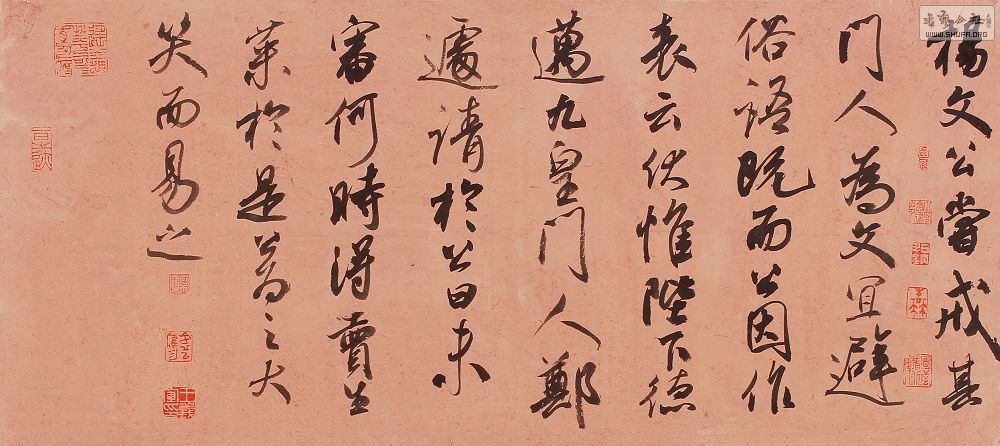 楊文公嘗戒其
門人為文宜避
俗語既而公因作
表云伏惟陛下德
邁九皇門人鄭
遽請於公曰未
審何時得賣生
菜於是公為之大
笑而易之
WWW.SHUFA.ORG